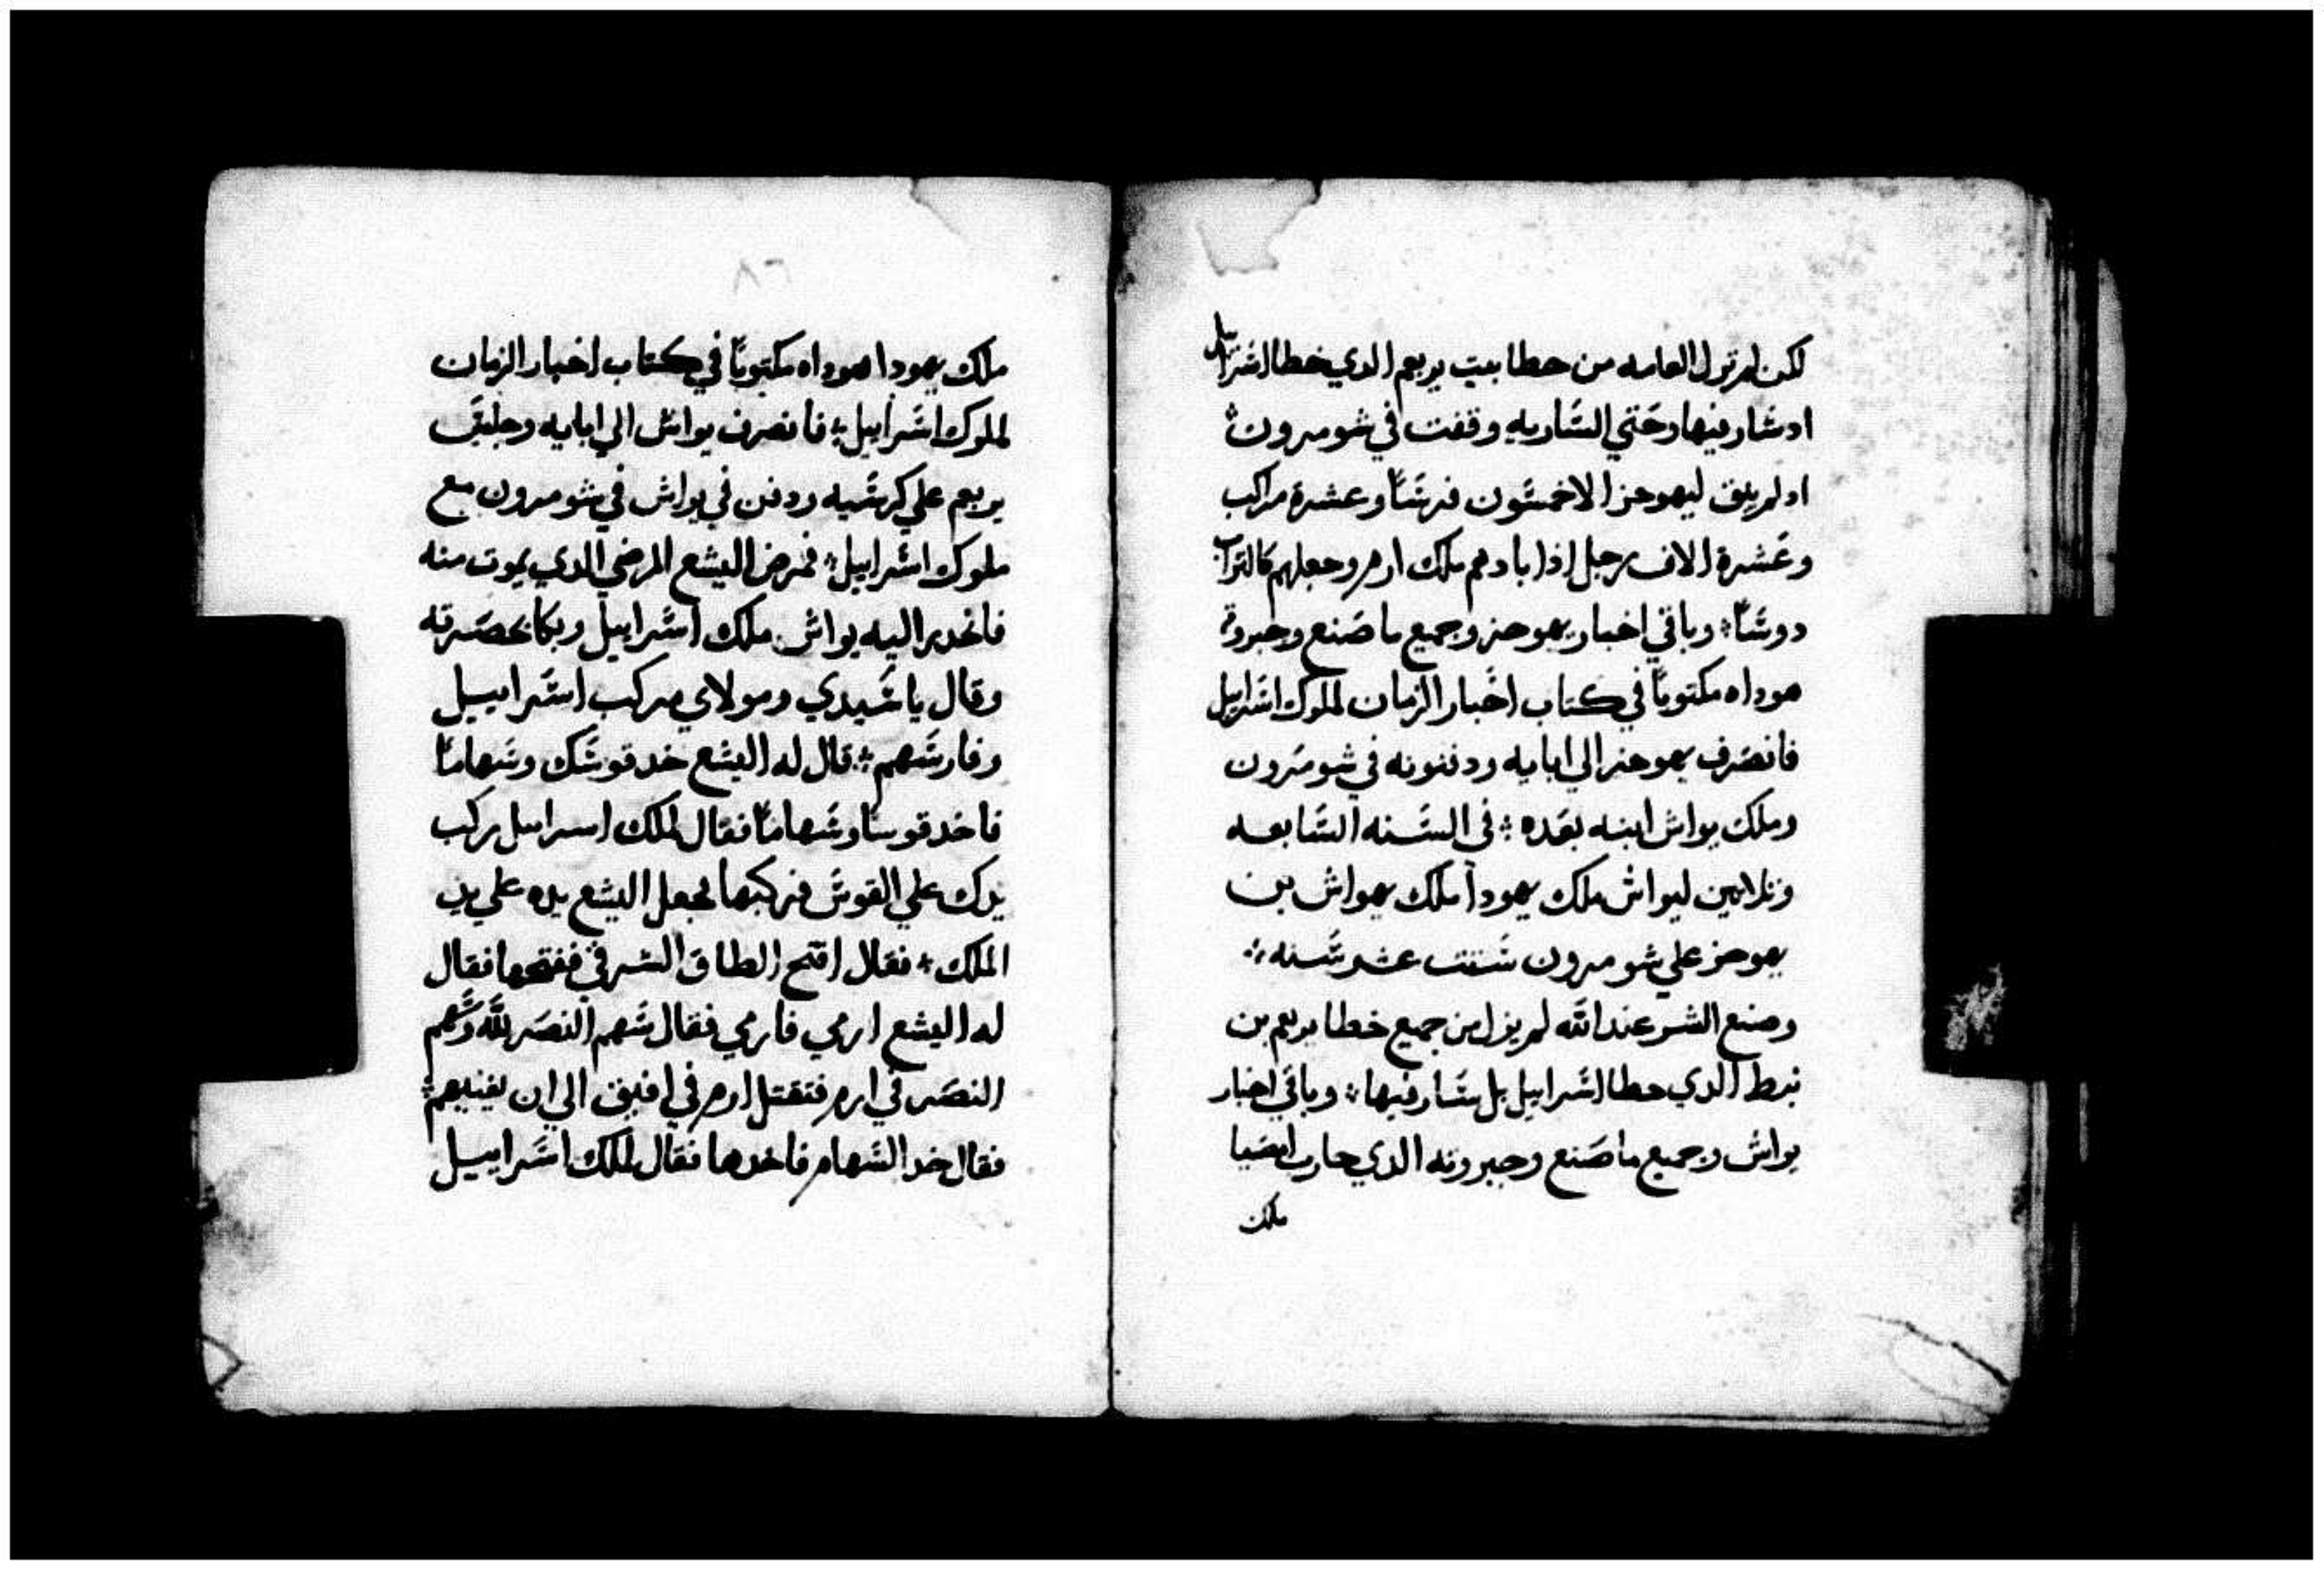 لكن لم تزل العامه من خطا بيت يربعم الدي خطا اشراييل
اد شار فيها وحتي الشاريه وقفت في شومرون
اد لم يبق ليهوحز الا خمشون فرشا وعشرة مراكب
وعشرة الاف رجل اذا بادهم ملك ارم وجعلهم كالتراب
دوشا وباقي اخبار يهوحز وجميع ما صنع وجبروته
هوداه مكتوبا في كتاب اخبار الزمان لملوك اشراييل
فانصرف يهوحز الي ابايه ودفنونه في شومرون
وملك يواش ابنه بعده في الشنه الشابعه
وتلاتين ليواش ملك يهودا ملك يهواش بن
يهوحز علي شومرون شتت عشر شنه
وصنع الشر عند الله لم يزل من جميع خطا يربعم بن
نبط الدي خطا اشراييل بل شار فيها وباقي اخبار
يواش وجميع ما صنع وجبروته الدي حارب امصيا
ملك
٨٦
ملك يهودا هوداه مكتوبا في كتاب اخبار الزمان
لملوك اشراييل فانصرف يواش الي ابايه وجلس
يربعم علي كرشيه ودفن في يواش في شومرون مع
ملوك اشراييل فمرض اليشع المرض الدي يموت منه
فانحدر اليه يواش ملك اشراييل وبكا بحضرته
وقال يا شيدي ومولاي مركب اشراييل
وفارشهم قال له اليشع خد قوشك وشهاما
فاخد قوسا وشهاما فقال لملك اسراييل ركب
يدك علي القوش فركبها فجعل اليشع يده علي يد
الملك فقال افتح الطاق الشرقي ففتحها فقال
له اليشع ارمي فارمي فقال شهم النصر لله وشهم
النصر في ارم فتقتل ارم في افيق الي ان تفنيهم
فقال خد الشهام فاخدها فقال لملك اشراييل